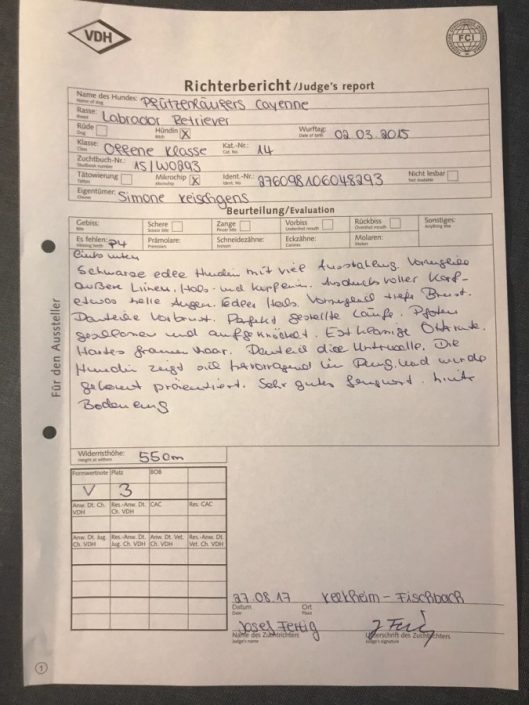 VDH
FCI
Richterbericht/Judge's report
Name des Hundes: Pfützenkäugers Cayenne
Name of dog
Rasse: Labrador Retriever
Breed
Rüde Hündin X Wurftag: 02.03.2015
Dog Bitch Date of birth
Klasse: Offene Klasse Kat.-Nr.: 14
Class Cat. No.
Zuchtbuch-Nr.: 15/W0293
Studbook number
Tätowierung Mikrochip X Ident.-Nr.: 276098106048293 Nicht lesbar
Tattoo Microchip Ident. No. Not readable
Eigentümer: Simone Keischgens
Owner
Beurteilung/Evaluation
Gebiss: Schere Zange Vorbiss Rückbiss Sonstiges:
Bite Scissor bite Pincer bite Undershot mouth Overshot mouth Anything else
Es fehlen: P4 Prämolare: Schneidezähne: Eckzähne: Molaren:
Missing teeth Premolars Incisors Canines Molars
links unten
Schwarze edle Hündin mit viel Ausstrahlung. Vorzügliche
äußere Linien, Hals- und Kopf Ausdrucksvoller Kopf
etwas helle Augen. Edler Hals. Vorzügliche tiefe Brust.
Deutliche Vorbrust. Perfekt gestellte Läufe. Pfoten
geschlossen und aufgeknöchelt. Erstklassige Otterrute.
Hartes Haar. Deutlich dicke Unterwolle. Die
Hündin zeigt sich hervorragend im Ring und wurde
gekonnt präsentiert. Sehr gutes Gangwerk. hinten
Boden eng
Für den Aussteller
Widerristhöhe: 55cm
Height at withers
Formwertnote Platz BOB
V 3
Anw. Dt. Ch. VDH Res.-Anw. Dt. Ch. VDH CAC Res. CAC
Anw. Dt. Jug. Ch. VDH Res.-Anw. Dt. Jug. Ch. VDH Anw. Dt. Vet. Ch. VDH Res.-Anw. Dt. Vet. Ch. VDH
27.08.17 Kelkheim-Fischbach
Datum Ort
Date Place
Josef Fertig
Name des Zuchtrichters Unterschrift des Zuchtrichters
Judge's name Judge's signature
1